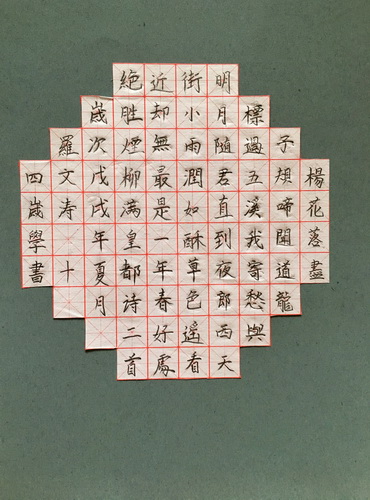 楊花落盡
子規啼聞道龍
標過五溪我寄愁與
明月隨君直到夜郎西天
街小雨潤如酥草色遙看
近却無最是一年春好處
絕胜煙柳满皇都诗二首
歲次戊戌年夏月
羅文涛十
四歲學書